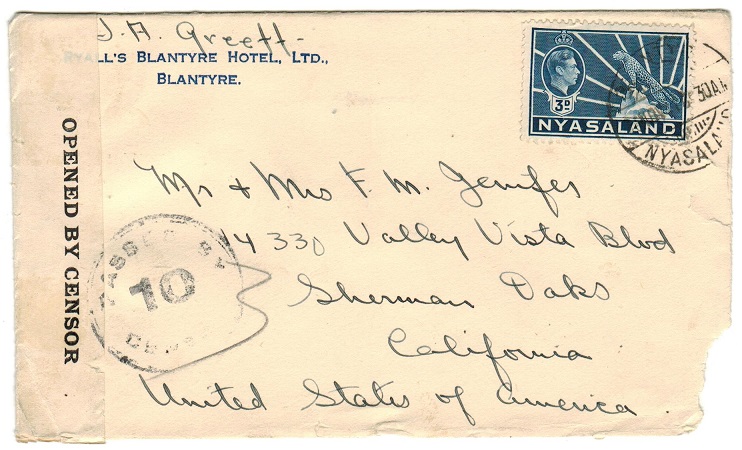 J. A. Greeff-
RYALL'S BLANTYRE HOTEL, LTD.,
BLANTYRE.
3D
NYASALAND
30AM
NYASALAND
OPENED BY CENSOR
PASSED BY
10
Mr & Mrs F. M. Jenifer
14330 Valley Vista Blvd
Sherman Oaks
California
United States of America.